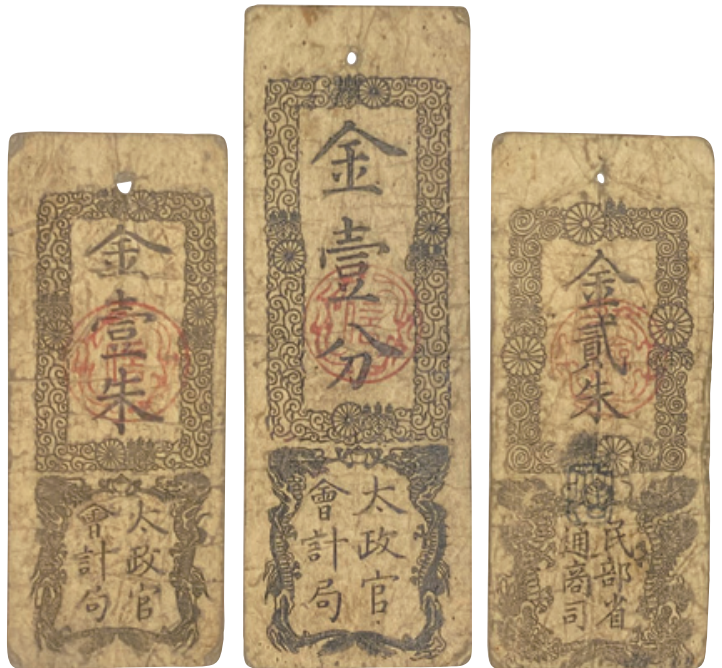 金壹朱
太政官
會計局
金壹分
太政官
會計局
金貳朱
民部省
通商司